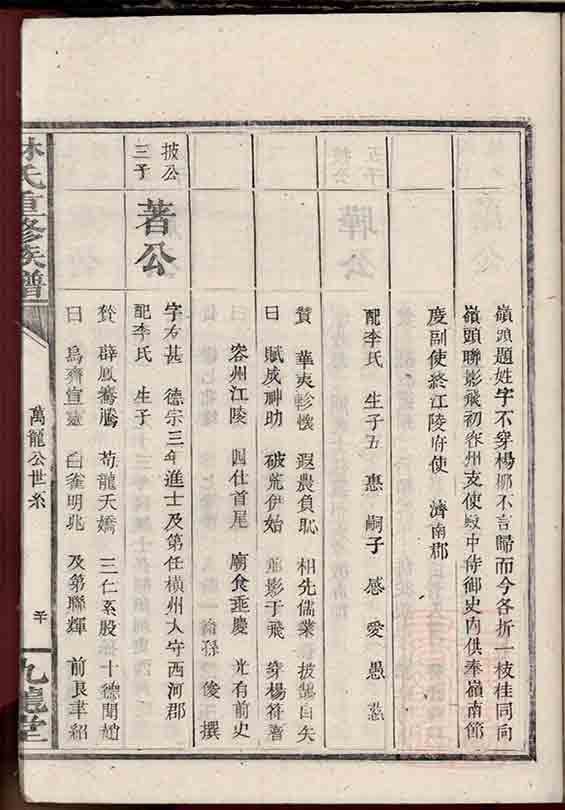 嶺頭題姓字不穿楊那不言歸而今各折一枝桂同向
嶺頭聯影飛初容州支使殿中侍御史內供奉嶺南節
度副使終江陵府使 濟南郡
配李氏 生子五 惠 嗣子 感 愛 愚 忿
贊 華夷軫懷 遐農負耻 相先儒業 披鵠自矢
曰 賦成神助 破荒伊始 聯影于飛 穿楊符蓍
容州江陵 四仕首尾 廟食垂慶 光有前史
曰 裔孫 俊 撰
披公
三子
著公
字右甚 德宗三年進士及第任橫州太守西河郡
配李氏 生子
贊 薜鳳騫騰 荀龍夭矯 三仁系股 十德聞趙
曰 烏齊宣靈 白雀明兆 及第聯輝 前良聿紹
林氏重修族譜
萬龍公世系
九龍堂